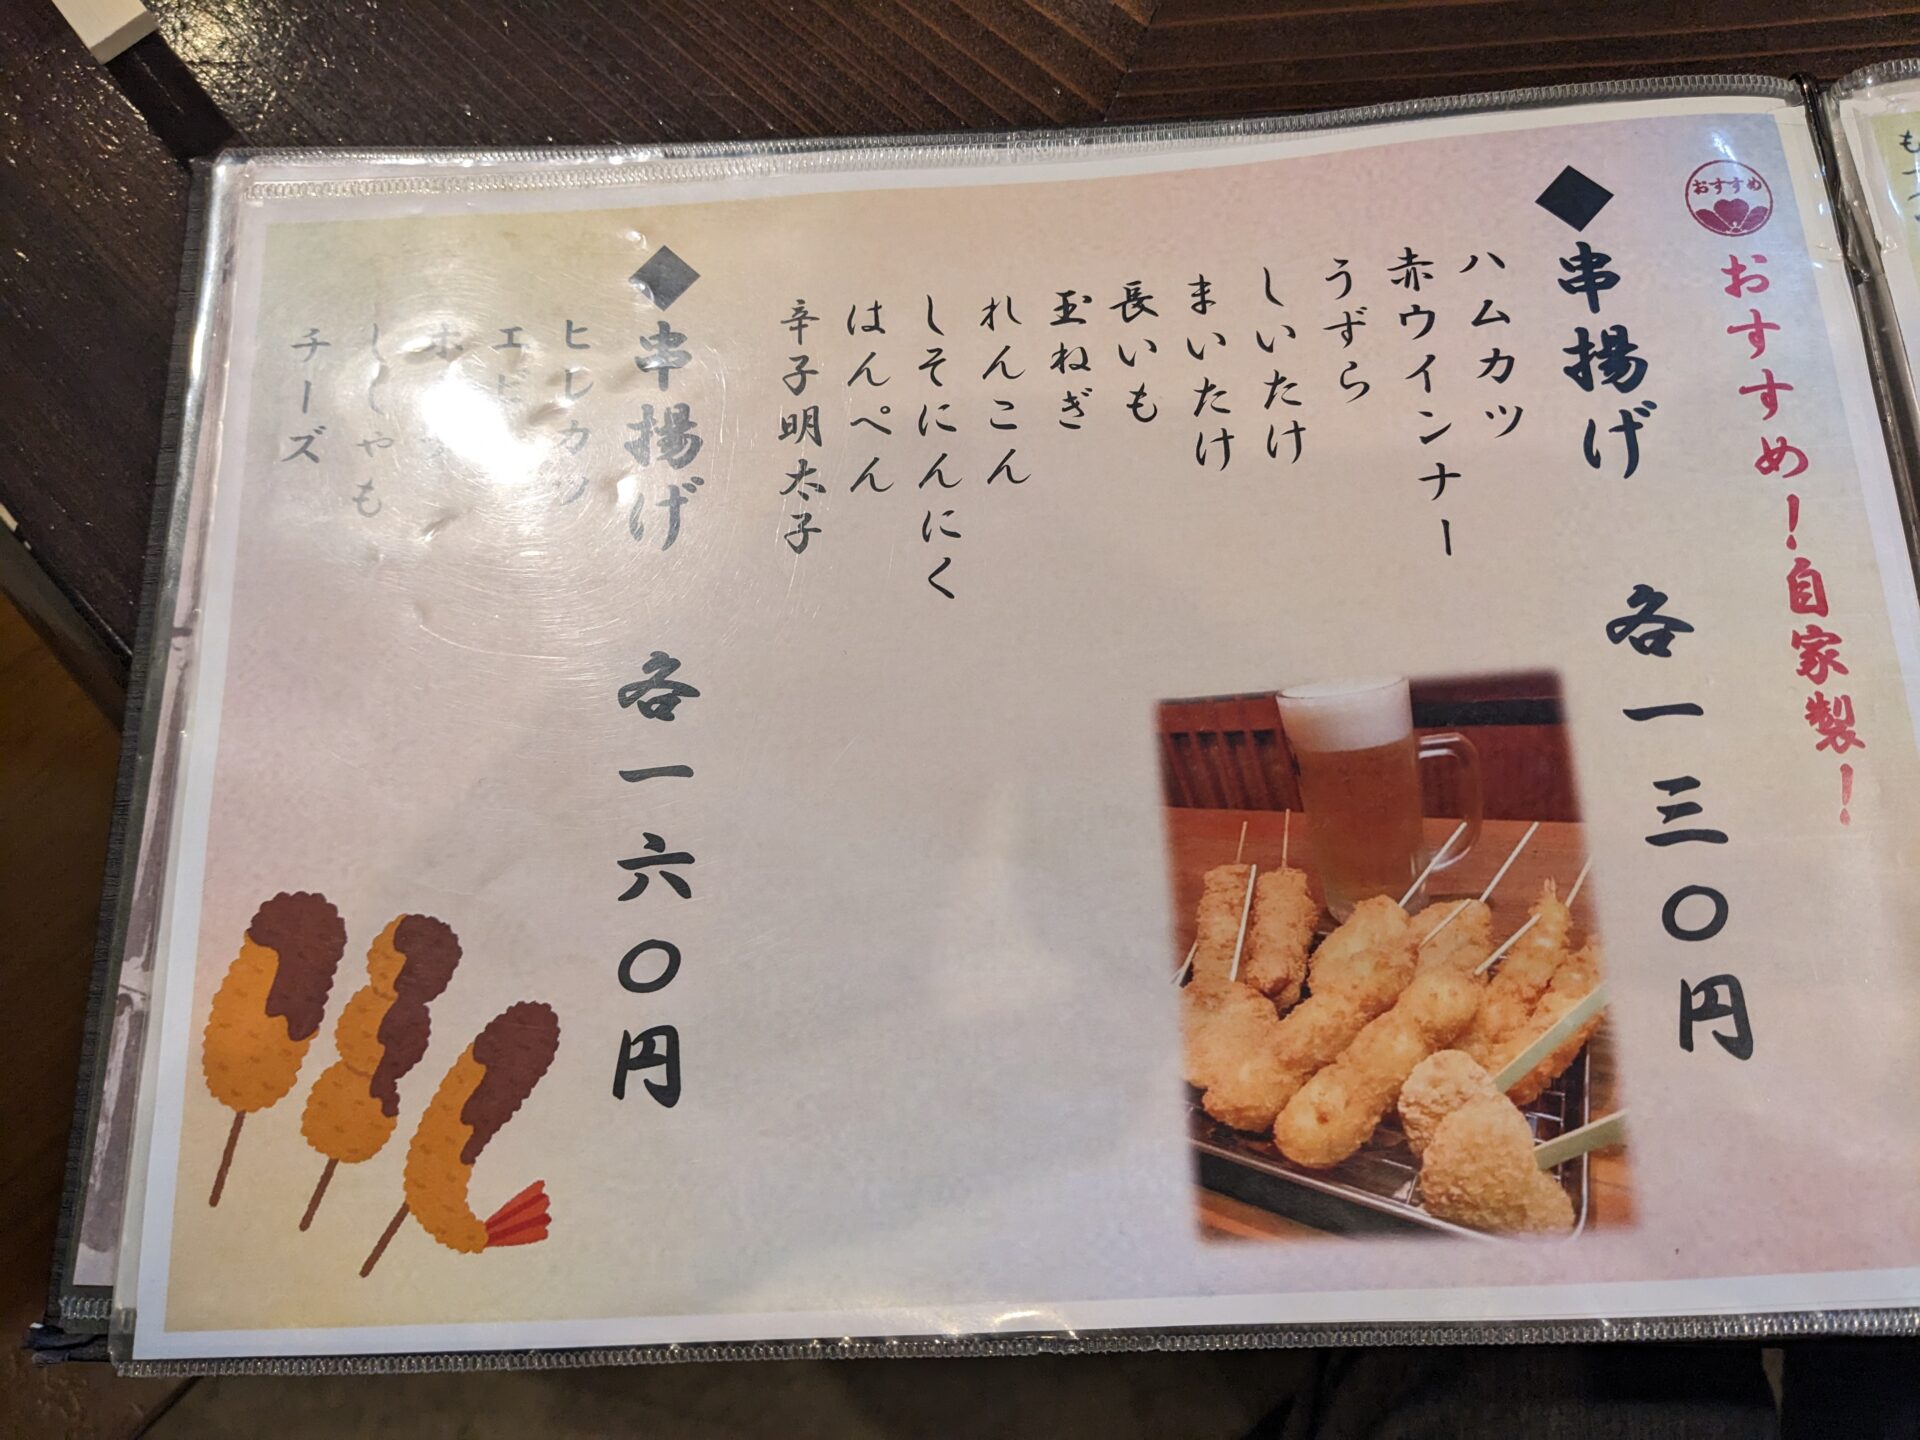 おすすめ
おすすめ！自家製！
◆串揚げ 各一三〇円
ハムカツ
赤ウインナー
うずら
しいたけ
まいたけ
長いも
玉ねぎ
れんこん
しそにんにく
はんぺん
辛子明太子
◆串揚げ 各一六〇円
ヒレカツ
エビ
ししゃも
チーズ